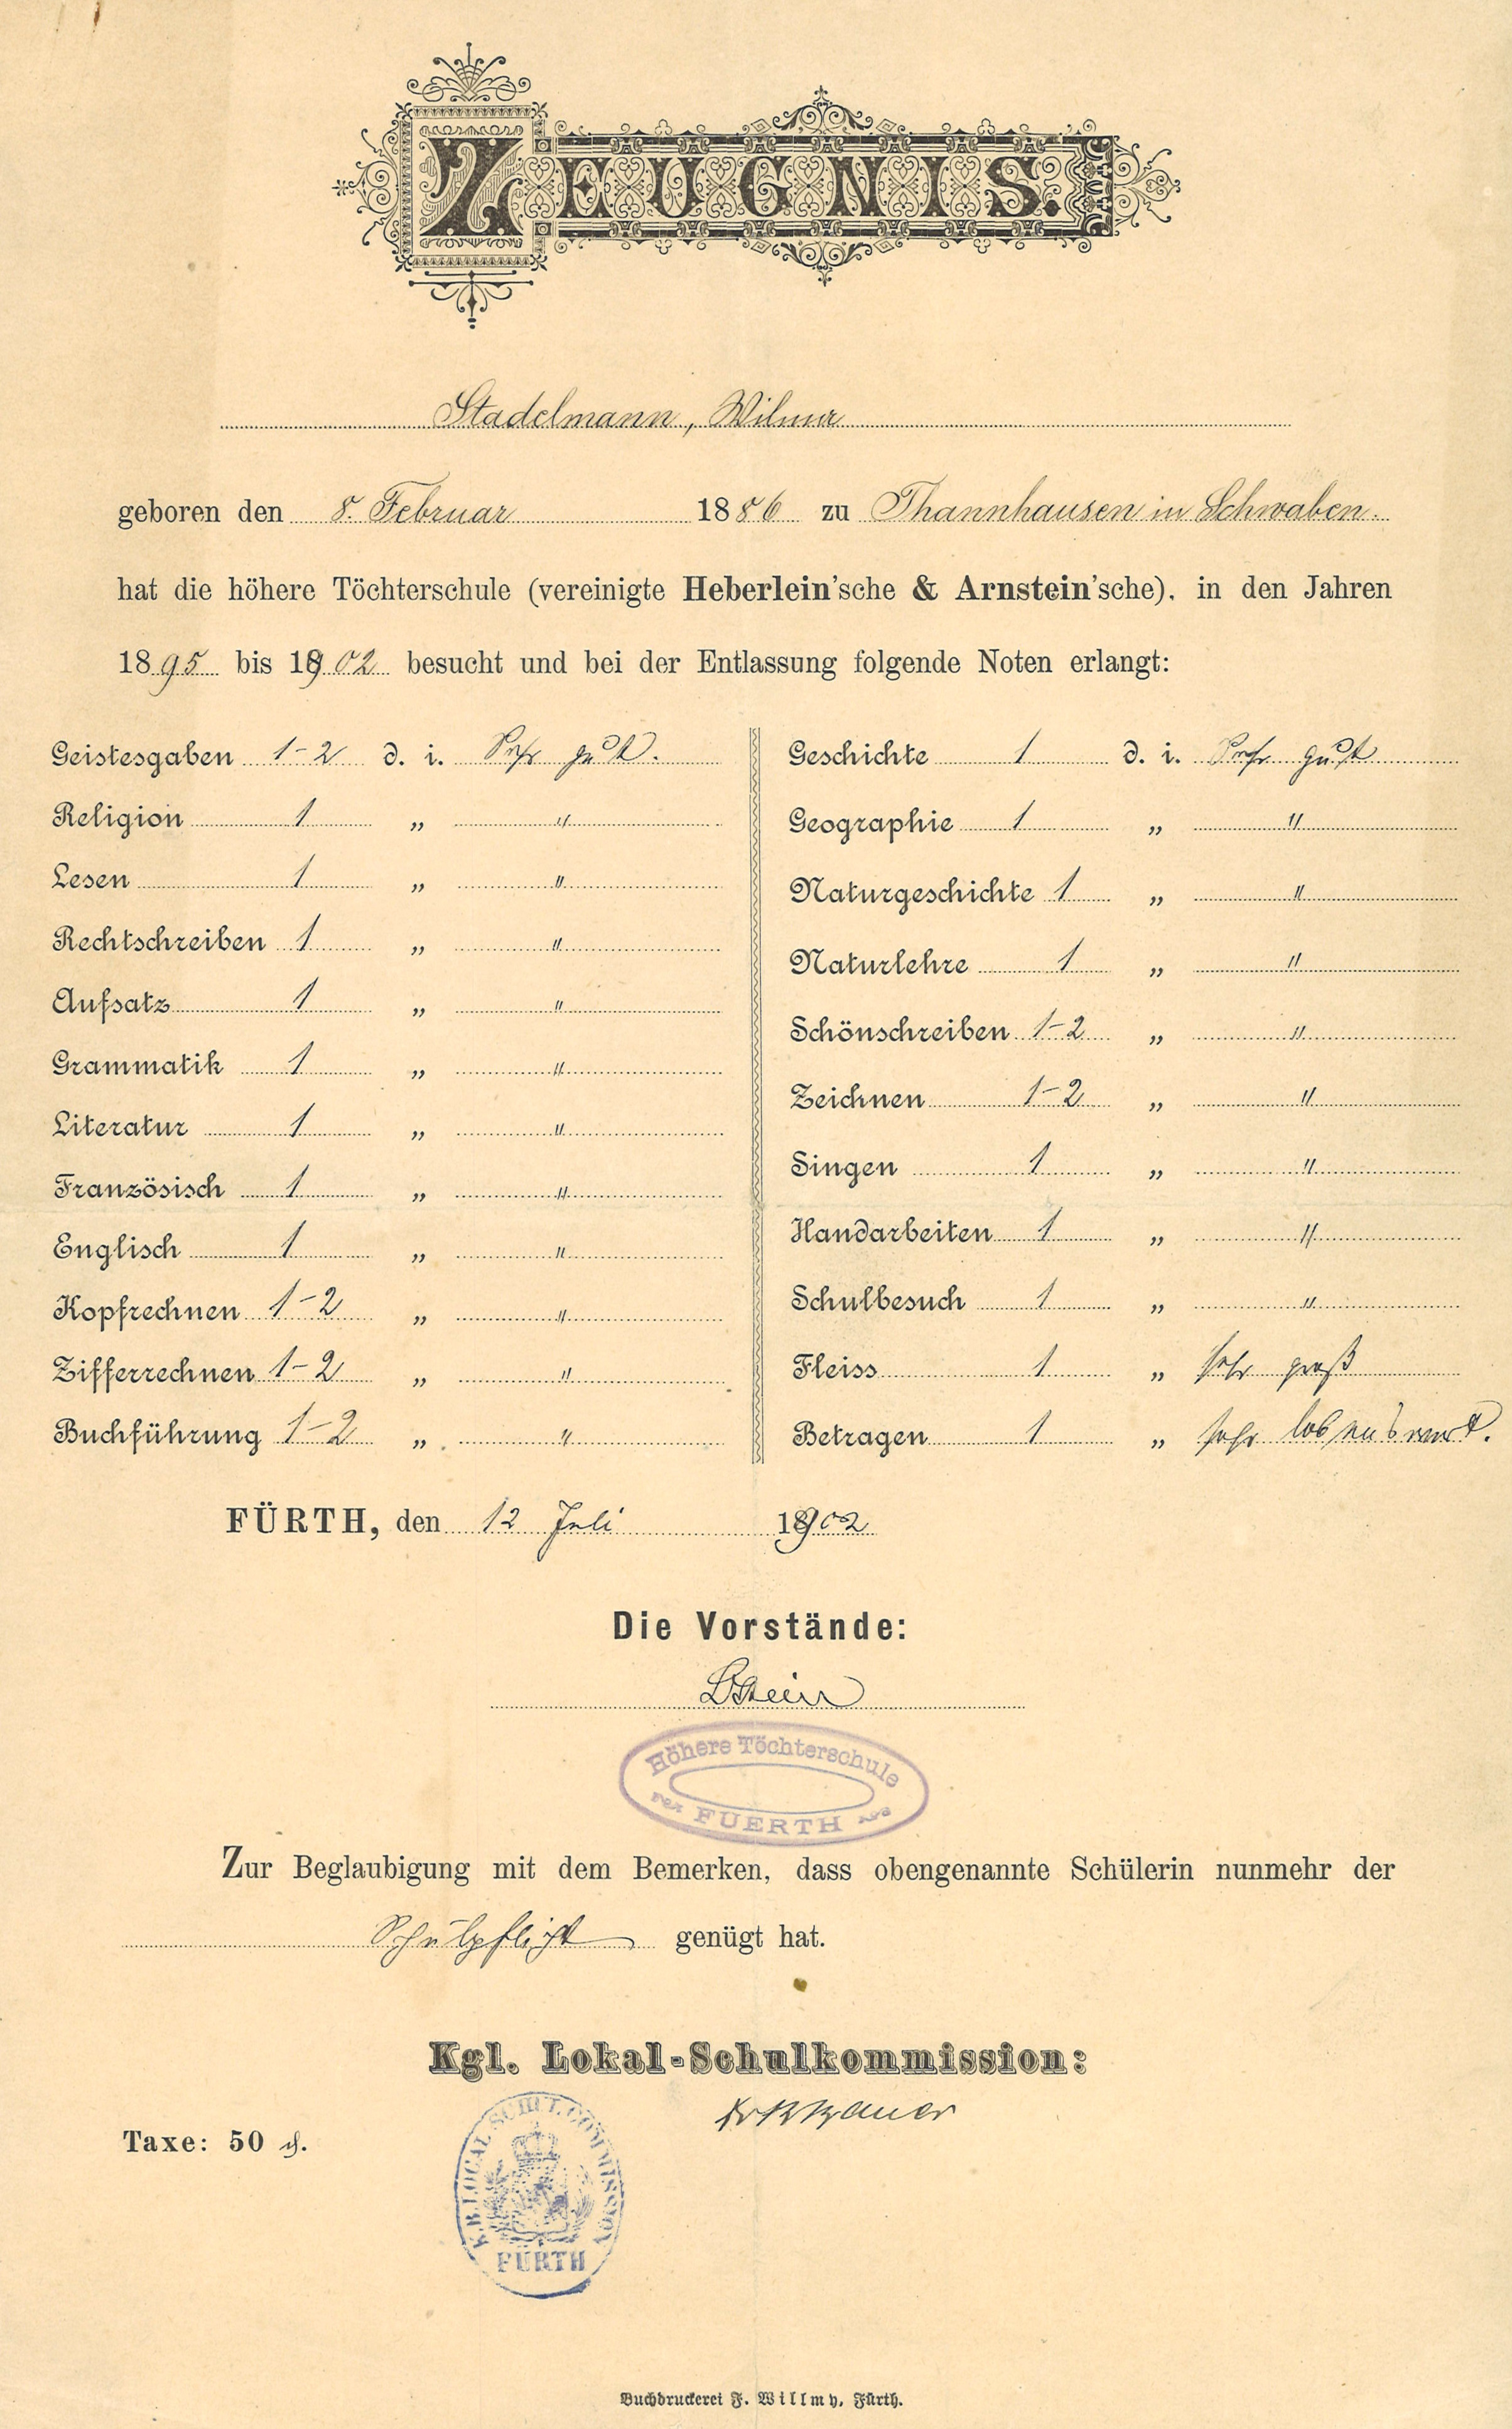 ZEUGNIS.
Stadelmann, Wilma
geboren den 8. Februar 1886 zu Thannhausen in Schwaben.
hat die höhere Töchterschule (vereinigte Heberlein'sche & Arnstein'sche), in den Jahren
1895 bis 1902 besucht und bei der Entlassung folgende Noten erlangt:
Geistesgaben 1-2 d. i. Sehr gut.
Religion 1 „ "
Lesen 1 „ "
Rechtschreiben 1 „ "
Aufsatz 1 „ "
Grammatik 1 „ "
Literatur 1 „ "
Französisch 1 „ "
Englisch 1 „ "
Kopfrechnen 1-2 „ "
Zifferrechnen 1-2 „ "
Buchführung 1-2 „ "
Geschichte 1 d. i. Sehr gut
Geographie 1 „ "
Naturgeschichte 1 „ "
Naturlehre 1 „ "
Schönschreiben 1-2 „ "
Zeichnen 1-2 „ "
Singen 1 „ "
Handarbeiten 1 „ "
Schulbesuch 1 „ "
Fleiss 1 „ sehr groß
Betragen 1 „ sehr lobenswert.
FÜRTH, den 12 Juli 1902
Die Vorstände:
Stein
Höhere Töchterschule
FUERTH
Zur Beglaubigung mit dem Bemerken, dass obengenannte Schülerin nunmehr der
Schulpflicht genügt hat.
Kgl. Lokal-Schulkommission:
Taxe: 50 ₰.
K.B. LOCAL-SCHUL-COMMISSION
FÜRTH
Buchdruckerei F. Willmy, Fürth.